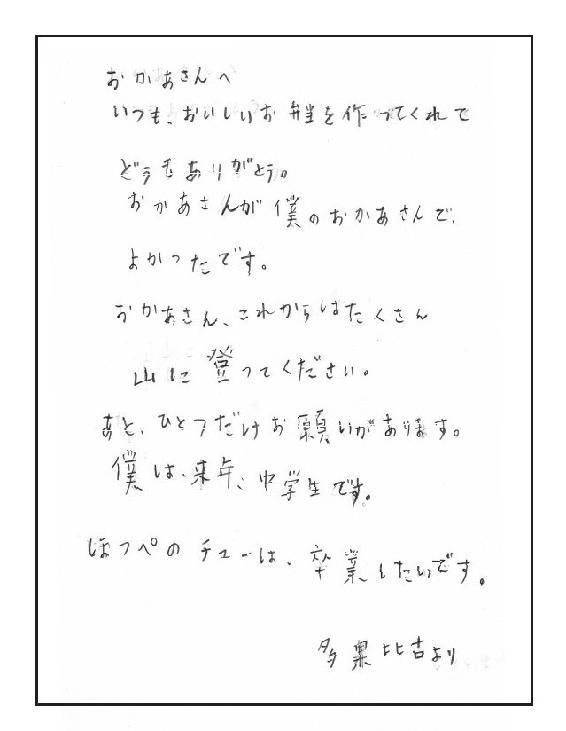 おかあさんへ
いつも、おいしいお弁当を作ってくれて
どうもありがとう。
おかあさんが僕のおかあさんで、
よかったです。
おかあさん、これからはたくさん
山に登ってください。
あと、ひとつだけお願いがあります。
僕は、来年、中学生です。
ほっペのチューは、卒業したいです。
多果比古より